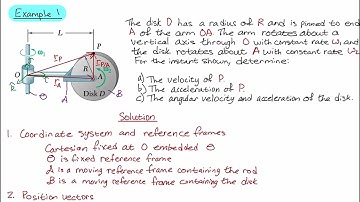 Example 1
The disk D has a radius of R and is pinned to end
A of the arm OA. The arm rotates about a
vertical axis through O with constant rate ω₁ and
the disk rotates about A with constant rate ω₂.
For the instant shown, determine:
a) The velocity of P.
b) The acceleration of P.
c) The angular velocity and acceleration of the disk.
L
P
R
O
A
Disk D
B
Solution
1. Coordinate system and reference frames
Cartesian fixed at O embedded
is fixed reference frame
A is a moving reference frame containing the rod
B is a moving reference frame containing the disk
2. Position vectors